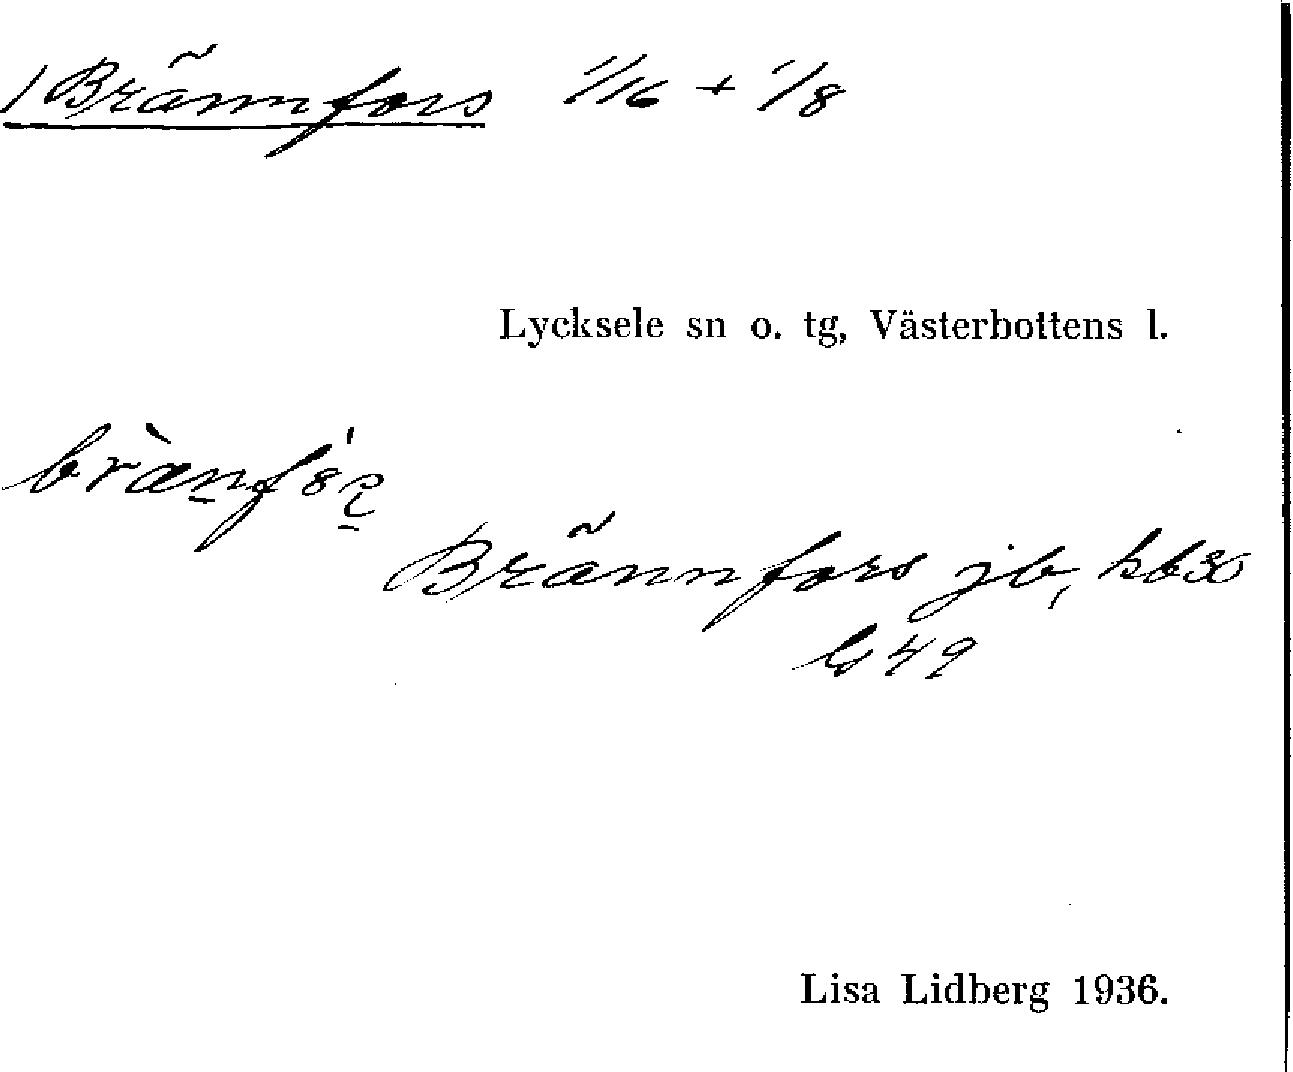 1 Brännfors 1/16 + 1/8
Lycksele sn o. tg, Västerbottens l.
Brännfors jb, kb30
G49
Lisa Lidberg 1936.